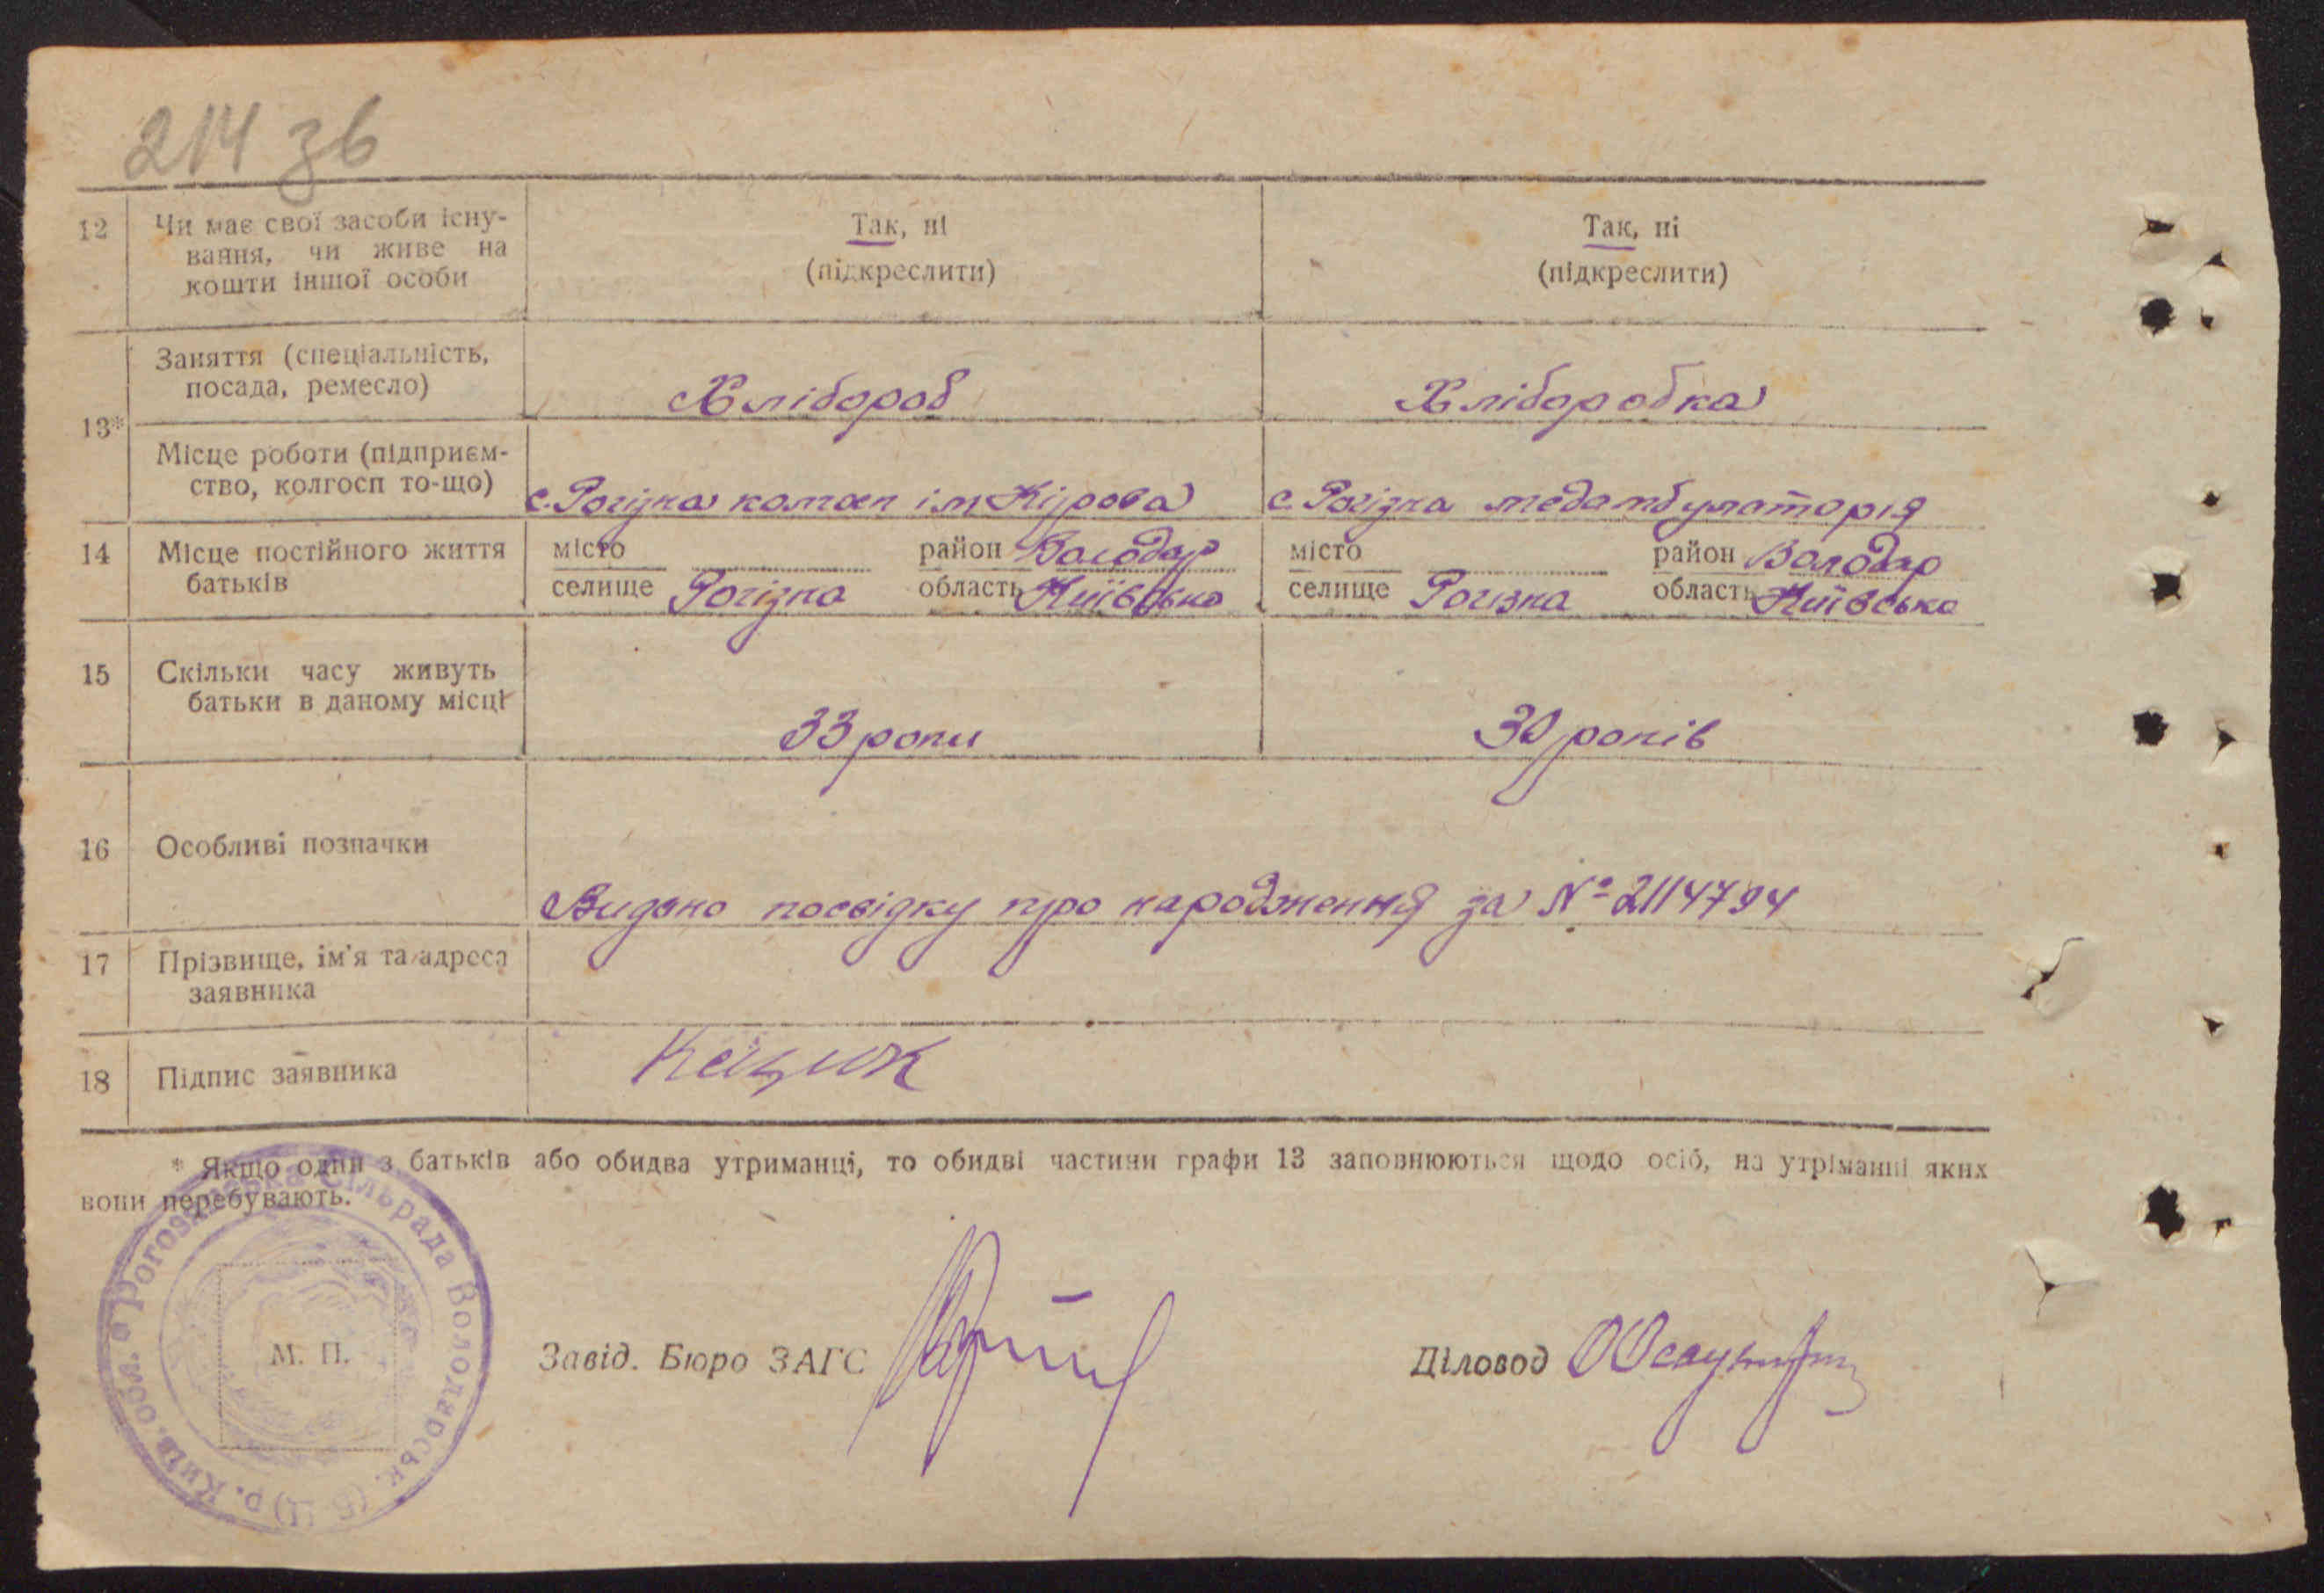 214 зв
12 Чи має свої засоби існу-
вання, чи живе на
кошти іншої особи
Так, ні
(підкреслити)
Так, ні
(підкреслити)
13*
Заняття (спеціальність,
посада, ремесло)
Хлібороб
Хлiборобка
Місце роботи (підприєм-
ство, колгосп то-що)
с. Рогізка колгосп ім Кірова
с. Рогізка медамбулаторія
14 Місце постійного життя
батьків
місто район Володар
селище Рогізка область Київська
місто район Володар
селище Рогізка область Київська
15 Скільки часу живуть
батьки в даному місці
33 роки
30 років
16 Особливі позначки
Видано посвідку про народження за № 2114794
17 Прізвище, ім'я та адреса
заявника
18 Підпис заявника
Кацик
* Якщо один з батьків або обидва утриманці, то обидві частини графи 13 заповнюються щодо осіб, на утріманні яких
вони перебувають.
Сільрада Володарськ. (б Ц) р. Київ. обл.
М. П.
Завід. Бюро ЗАГС
Діловод